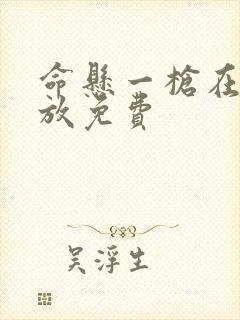 命悬一槍在
放免費
吴浮生